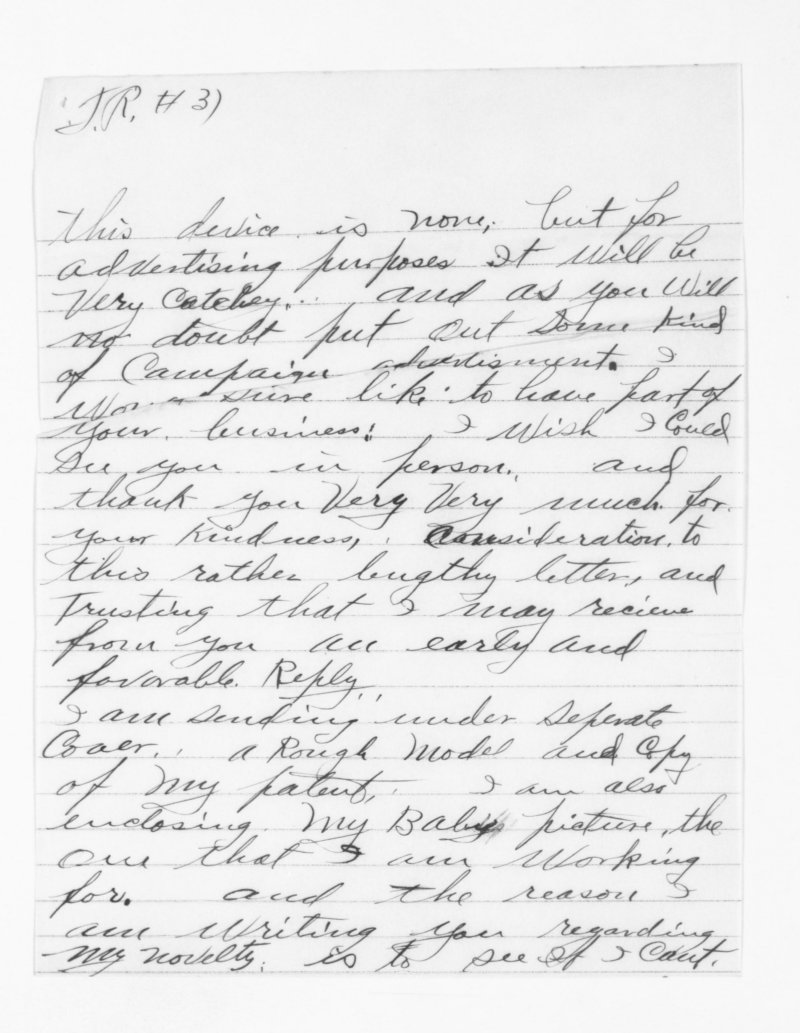 J.R. # 3)
this device is none, but for
advertising purposes It Will be
Very Catchey... and as you Will
no doubt put out Some Kind
of Campaign advertisment. I
sure like to have part of
your business: I Wish I Could
see you in person, and
thank you Very Very much for
your Kindness, consideration, to
this rather lengthy letter, and
Trusting that I may recieve
from you an early and
favorable Reply..
I am sending under Seperate
Cover.. a Rough Model and Copy
of My patent, I am also
enclosing My Baby picture, the
one that I am Working
for. and the reason I
am Writing you regarding
My novelty, is to see If I Cant.